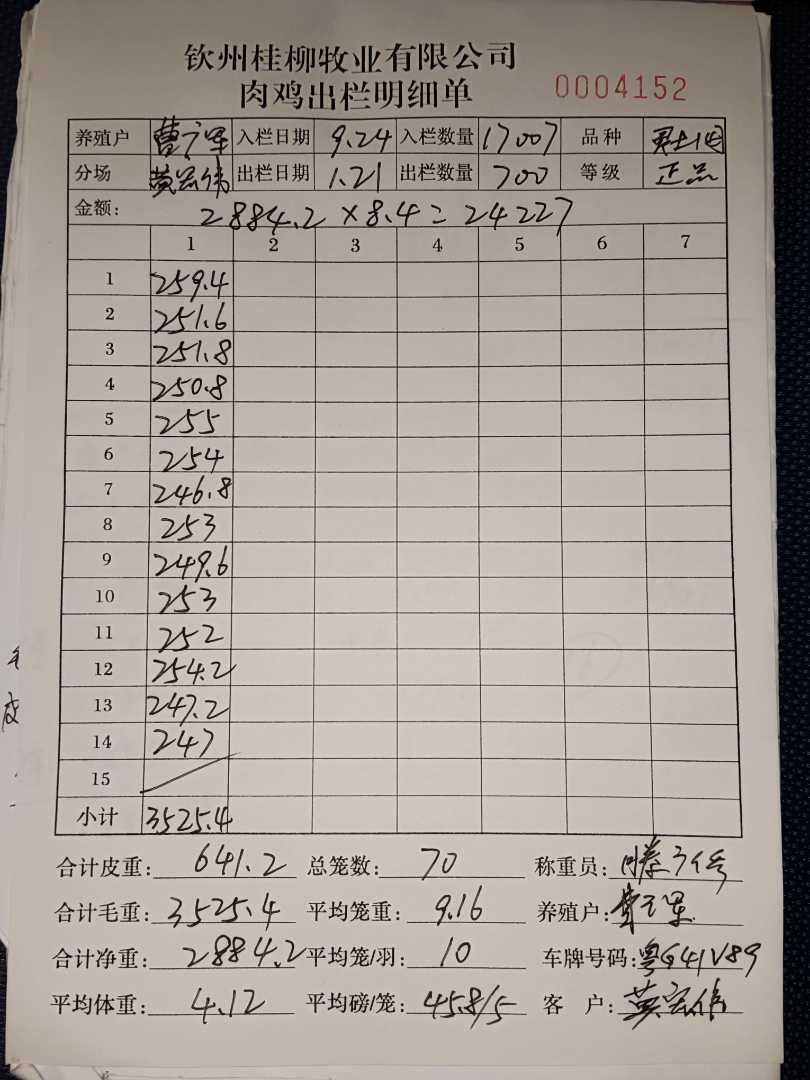 钦州桂柳牧业有限公司
肉鸡出栏明细单 0004152
养殖户 曹广军 入栏日期 9.24 入栏数量 17007 品种
分场 黄宏伟 出栏日期 1.21 出栏数量 700 等级 正品
金额: 2884.2×8.4=24227
1 2 3 4 5 6 7
1 259.4
2 251.6
3 251.8
4 250.8
5 255
6 254
7 246.8
8 253
9 249.6
10 253
11 252
12 254.2
13 247.2
14 247
15
小计 3525.4
合计皮重: 641.2 总笼数: 70 称重员:
合计毛重: 3525.4 平均笼重: 9.16 养殖户: 曹广军
合计净重: 2884.2 平均笼/羽: 10 车牌号码: 粤G41V89
平均体重: 4.12 平均磅/笼: 45.8/5 客 户: 黄宏伟
皮